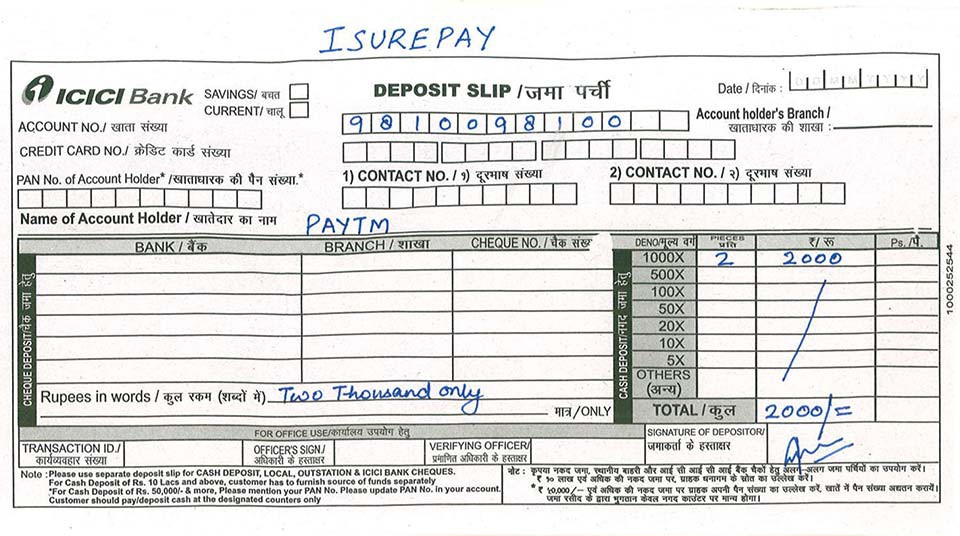 ISUREPAY
ICICI Bank
SAVINGS/ बचत
CURRENT/ चालू
DEPOSIT SLIP / जमा पर्ची
Date / दिनांक :
ACCOUNT NO./ खाता संख्या
9810098100
Account holder's Branch /
खाताधारक की शाखा :
CREDIT CARD NO./ क्रेडिट कार्ड संख्या
PAN No. of Account Holder* /खाताधारक की पैन संख्या.*
1) CONTACT NO. / १) दूरभाष संख्या
2) CONTACT NO. / २) दूरभाष संख्या
Name of Account Holder / खातेदार का नाम PAYTM
BANK / बैंक BRANCH / शाखा CHEQUE NO. / चैक संख्
DENO/मूल्य वर्ग PIECES प्रति ₹/ रू Ps. /पै.
CHEQUE DEPOSIT/चैक जमा हेतु
CASH DEPOSIT/नगद जमा हेतु
1000X 2 2000
500X
100X
50X
20X
10X
5X
OTHERS
(अन्य)
Rupees in words / कुल रकम (शब्दों में) Two Thousand only
मात्र /ONLY
TOTAL / कुल 2000/=
1000252544
FOR OFFICE USE/कार्यालय उपयोग हेतु
TRANSACTION ID./
कार्यव्यवहार संख्या
OFFICER'S SIGN./
अधिकारी के हस्ताक्षर
VERIFYING OFFICER/
प्रमाणित अधिकारी के हस्ताक्षर
SIGNATURE OF DEPOSITOR/
जमाकर्ता के हस्ताक्षर
Note : Please use separate deposit slip for CASH DEPOSIT, LOCAL, OUTSTATION & ICICI BANK CHEQUES.
For Cash Deposit of Rs. 10 Lacs and above, customer has to furnish source of funds separately
*For Cash Deposit of Rs. 50,000/- & more, Please mention your PAN No. Please update PAN No. in your account.
Customer should pay/deposit cash at the designated counters only
नोट : कृपया नकद जमा, स्थानीय बाहरी और आई सी आई सी आई बैंक चैकों हेतु अलग-अलग जमा पर्चियों का उपयोग करें।
₹ १० लाख एवं अधिक की नकद जमा पर, ग्राहक धनागम के स्रोत का उल्लेख करें।
* ₹ ५०,०००/– एवं अधिक की नकद जमा पर ग्राहक अपनी पैन संख्या का उल्लेख करें, खातें में पैन संख्या अद्यतन करायें।
जमा रसीद के द्वारा भुगतान केवल नगद काउंटर पर मान्य होगा।